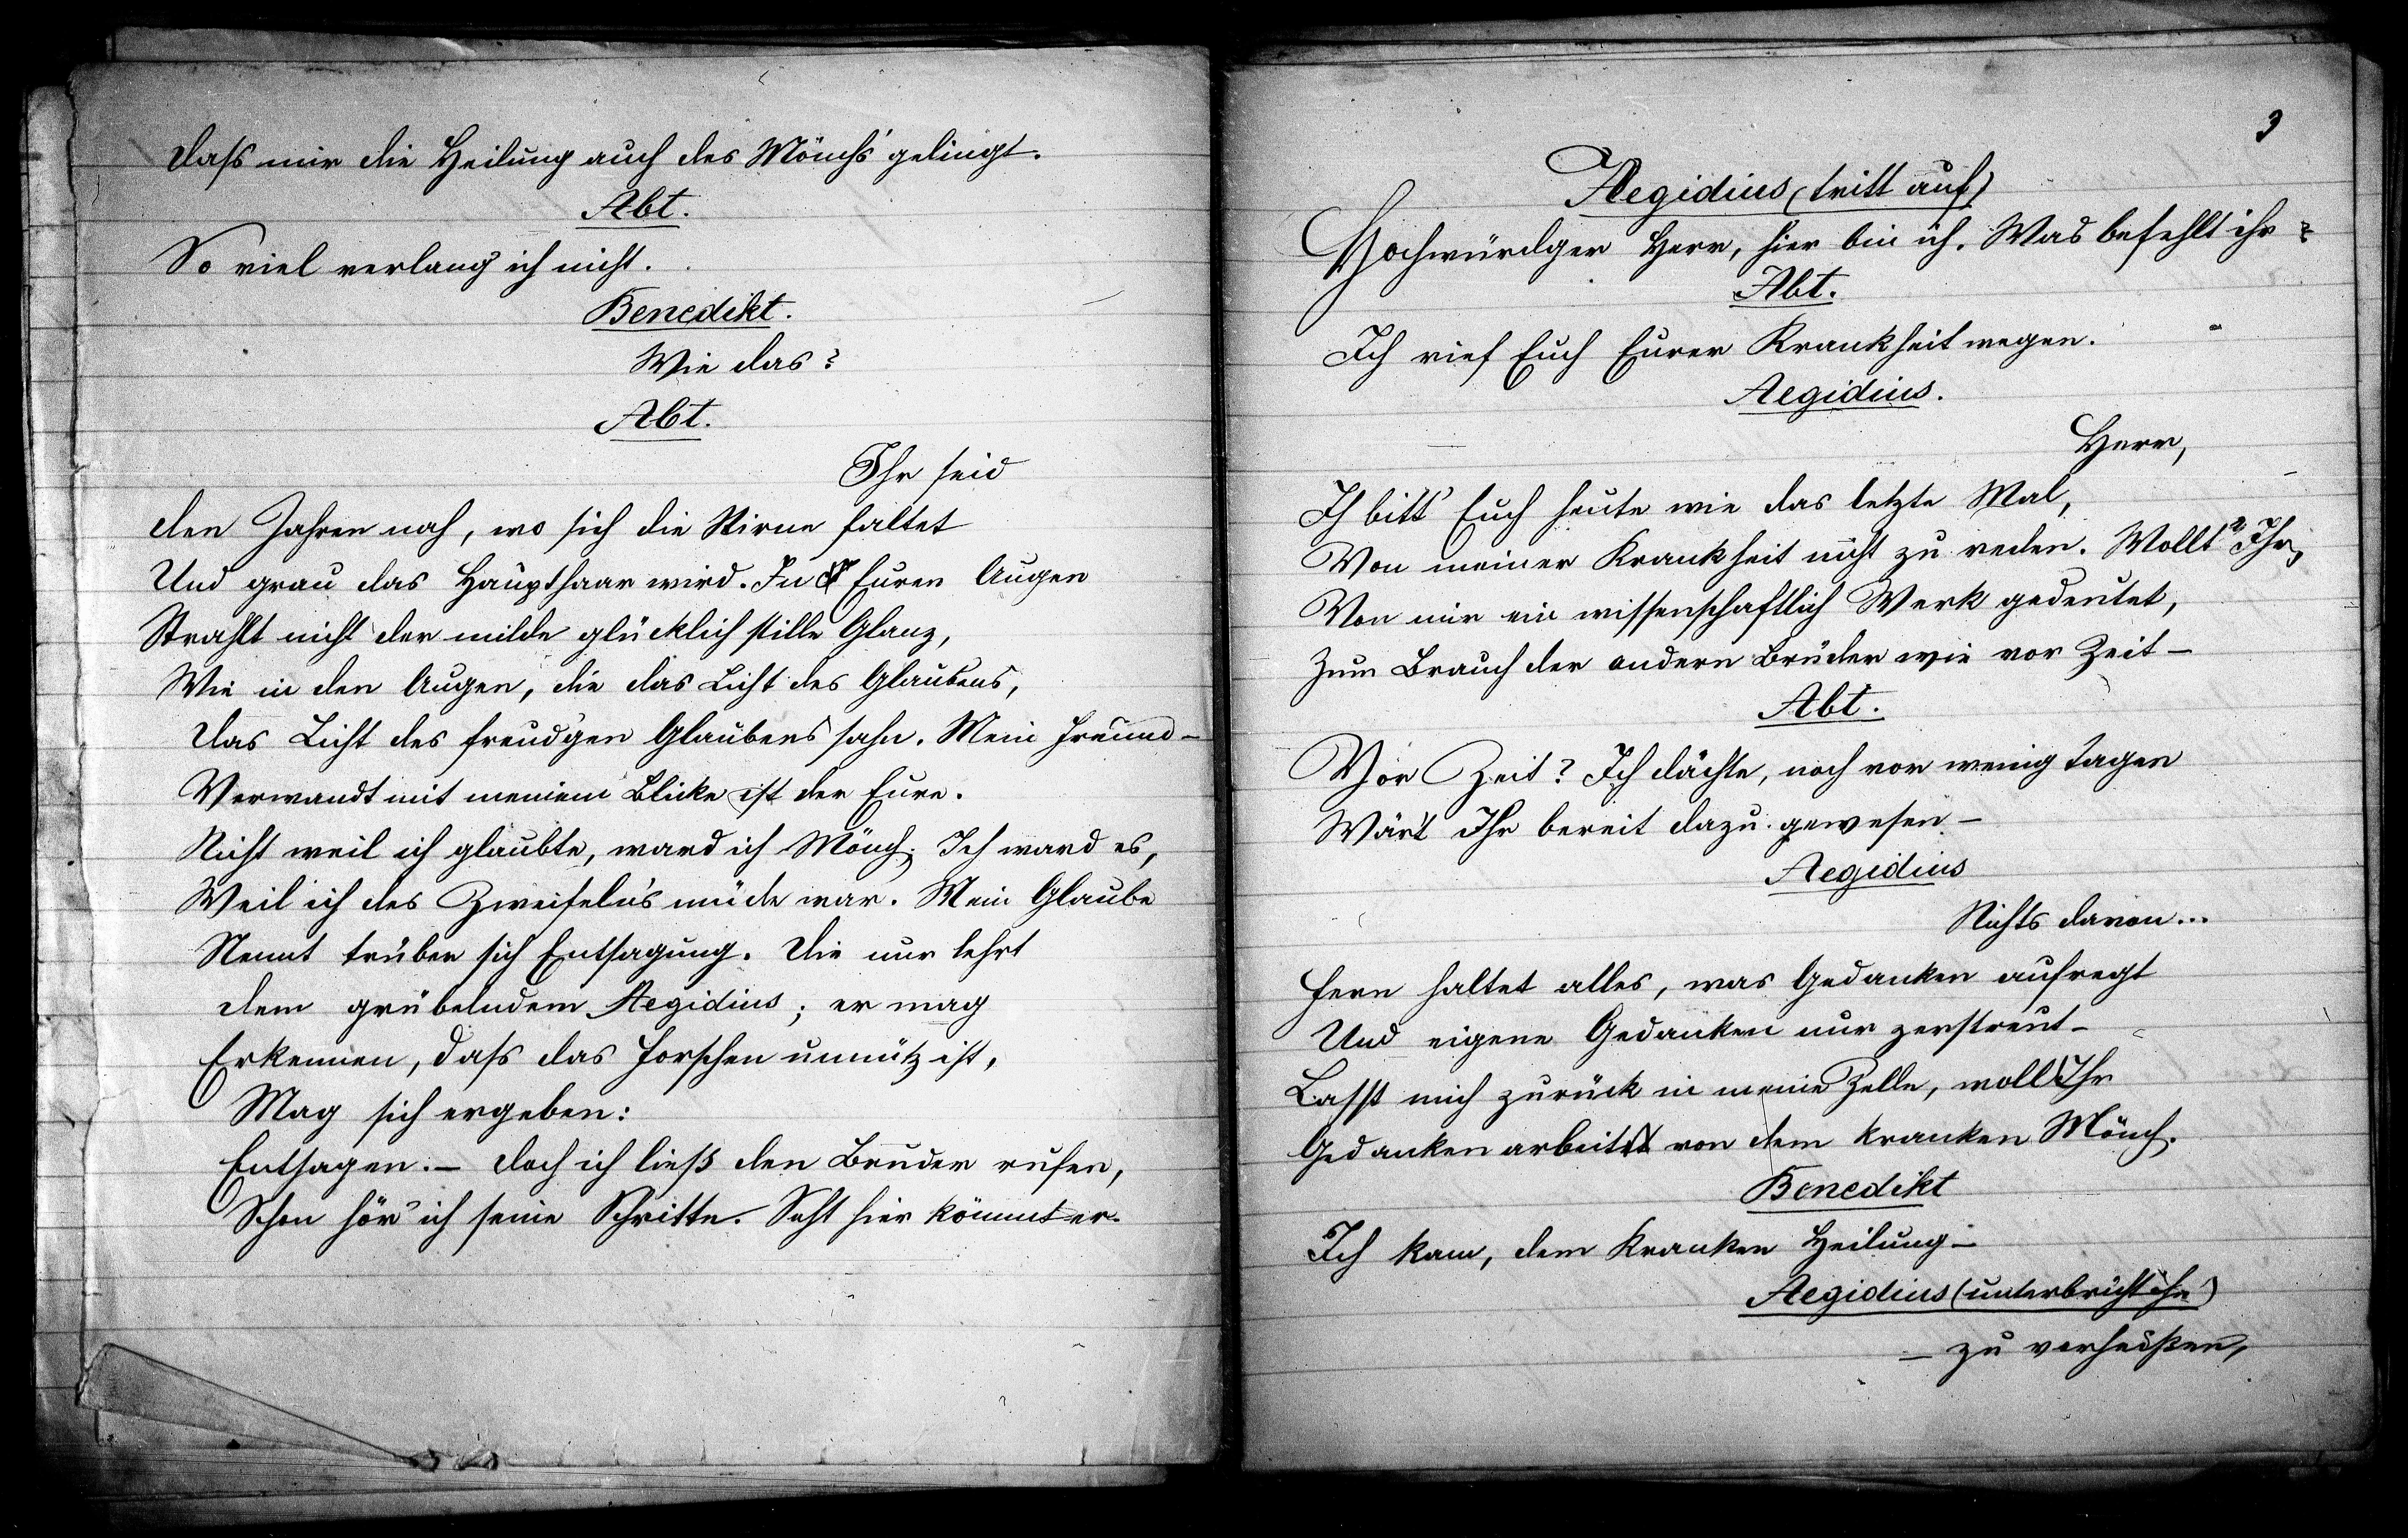 Dass mir die Heilung auch des Mönch's gelingt.
Abt.
So viel verlang' ich nicht.
Benedikt.
Wie das?
Abt.
Ihr seid
den Jahren nah, wo sich die Stirne faltet
Und grau das Haupthaar wird. In Euren Augen
Strahlt nicht der milde glücklich stille Glanz,
Wie in den Augen, die das Licht des Glaubens,
Das Licht des freud'gen Glaubens sahn. Mein Freund -
Verwandt mit meinem Blicke ist der Eure.
Nicht weil ich glaubte, ward ich Mönch; Ich ward es,
Weil ich des Zweifeln's müde war. Mein Glaube
Nennt trüber sich Entsagung. Die nur lehrt
dem grübelndem Aegidius; er mag
Erkennen, dass das Forschen unnütz ist,
Mag sich ergeben:
Entsagen. – Doch ich ließ den Bruder rufen,
Schon hör' ich seine Schritte. Seht hier kömmt er.
3
Aegidius (tritt auf)
Hochwürdger Herr, hier bin ich. Was befehlt ihr?
Abt.
Ich rief Euch Eurer Krankheit wegen.
Aegidius.
Herr,
Ich bitt' Euch heute wie das letzte Mal,
Von meiner Krankheit nicht zu reden. Wollt Ihr,
Von mir ein wissenschaftlich Werk gedeutet,
Zum Brauch der andern Brüder wie vor Zeit –
Abt.
Vor Zeit? Ich dächte, noch vor wenig Tagen
Wär't Ihr bereit dazu gewesen –
Aegidius
Nichts davon...
Fern haltet alles, was Gedanken aufregt
Und eigene Gedanken nur zerstreut –
Lasst mich zurück in meine Zelle, wollt Ihr
Gedankenarbeit von dem kranken Mönch.
Benedikt
Ich kam, dem Kranken Heilung –
Aegidius (unterbricht ihn)
– zu verheißen,